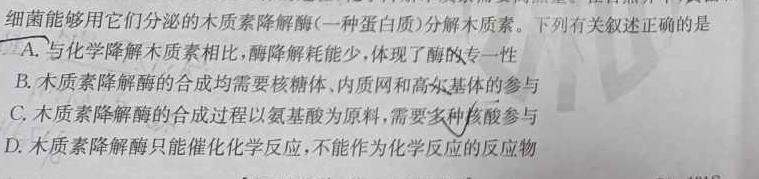 细菌能够用它们分泌的木质素降解酶(一种蛋白质)分解木质素。下列有关叙述正确的是
A. 与化学降解木质素相比,酶降解耗能少,体现了酶的专一性
B. 木质素降解酶的合成均需要核糖体、内质网和高尔基体的参与
C. 木质素降解酶的合成过程以氨基酸为原料,需要多种核酸参与
D. 木质素降解酶只能催化化学反应,不能作为化学反应的反应物